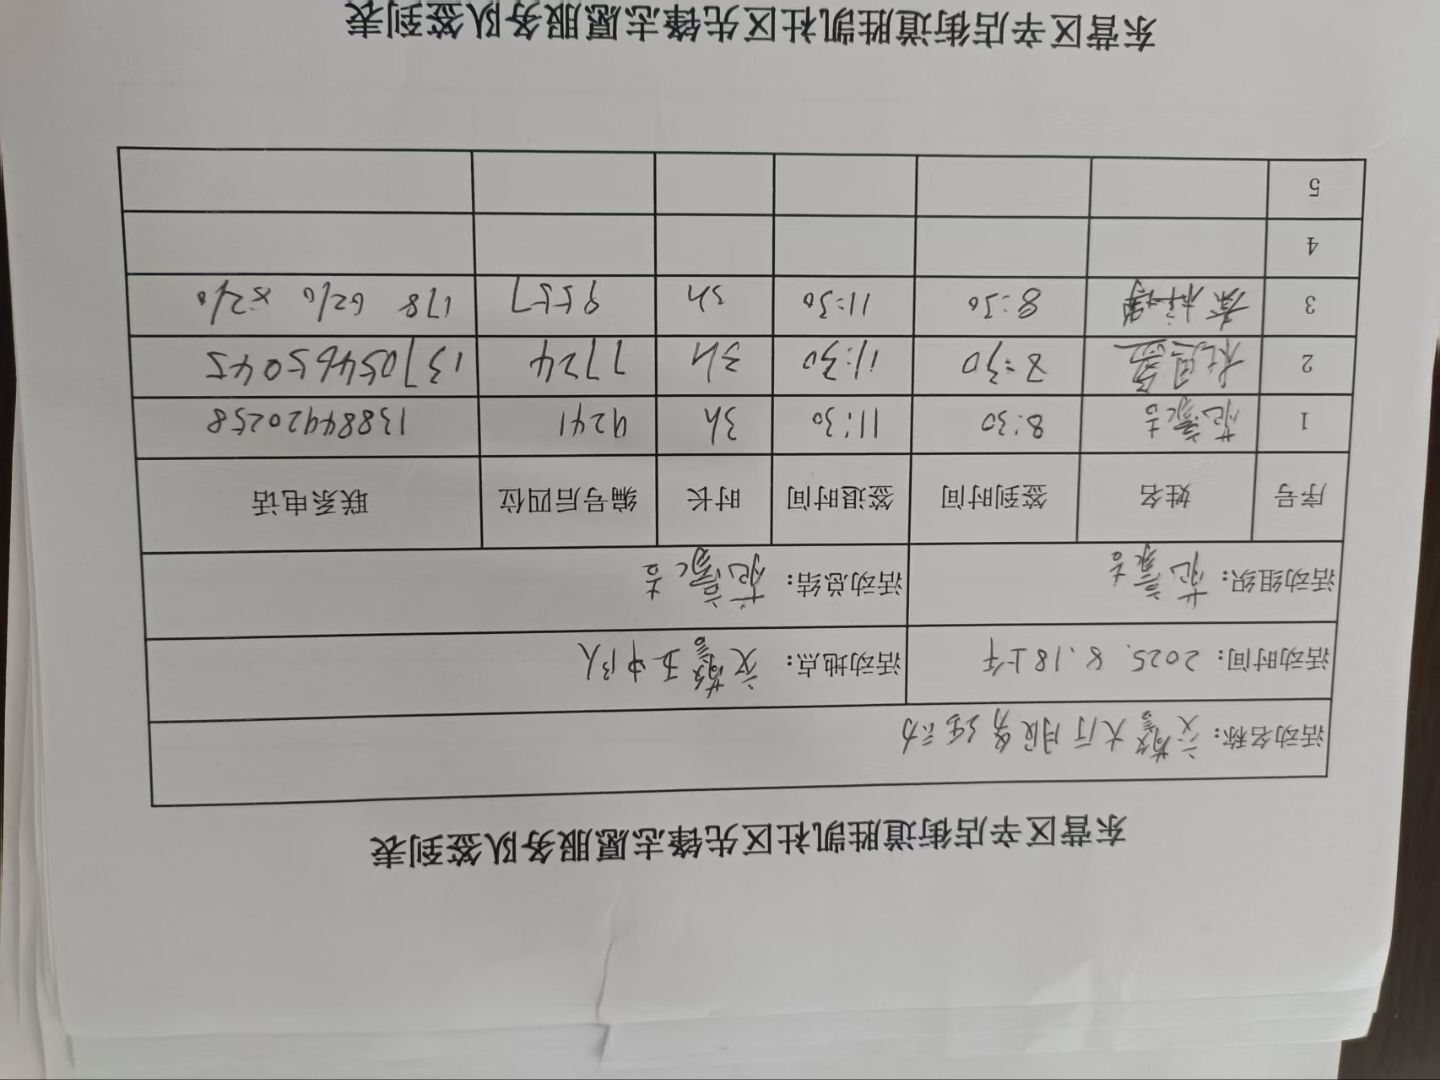 东营区辛店街道胜凯社区先锋志愿服务队签到表
活动名称：交警大厅服务活动
活动时间：2025.8.18上午 活动地点：交警五中队
活动组织： 活动总结：
序号 姓名 签到时间 签退时间 时长 编号后四位 联系电话
1 8:30 11:30 3h 4241 13884920258
2 8:30 11:30 3h 7724 13705465045
3 8:30 11:30 3h 9557
4
5
东营区辛店街道胜凯社区先锋志愿服务队签到表